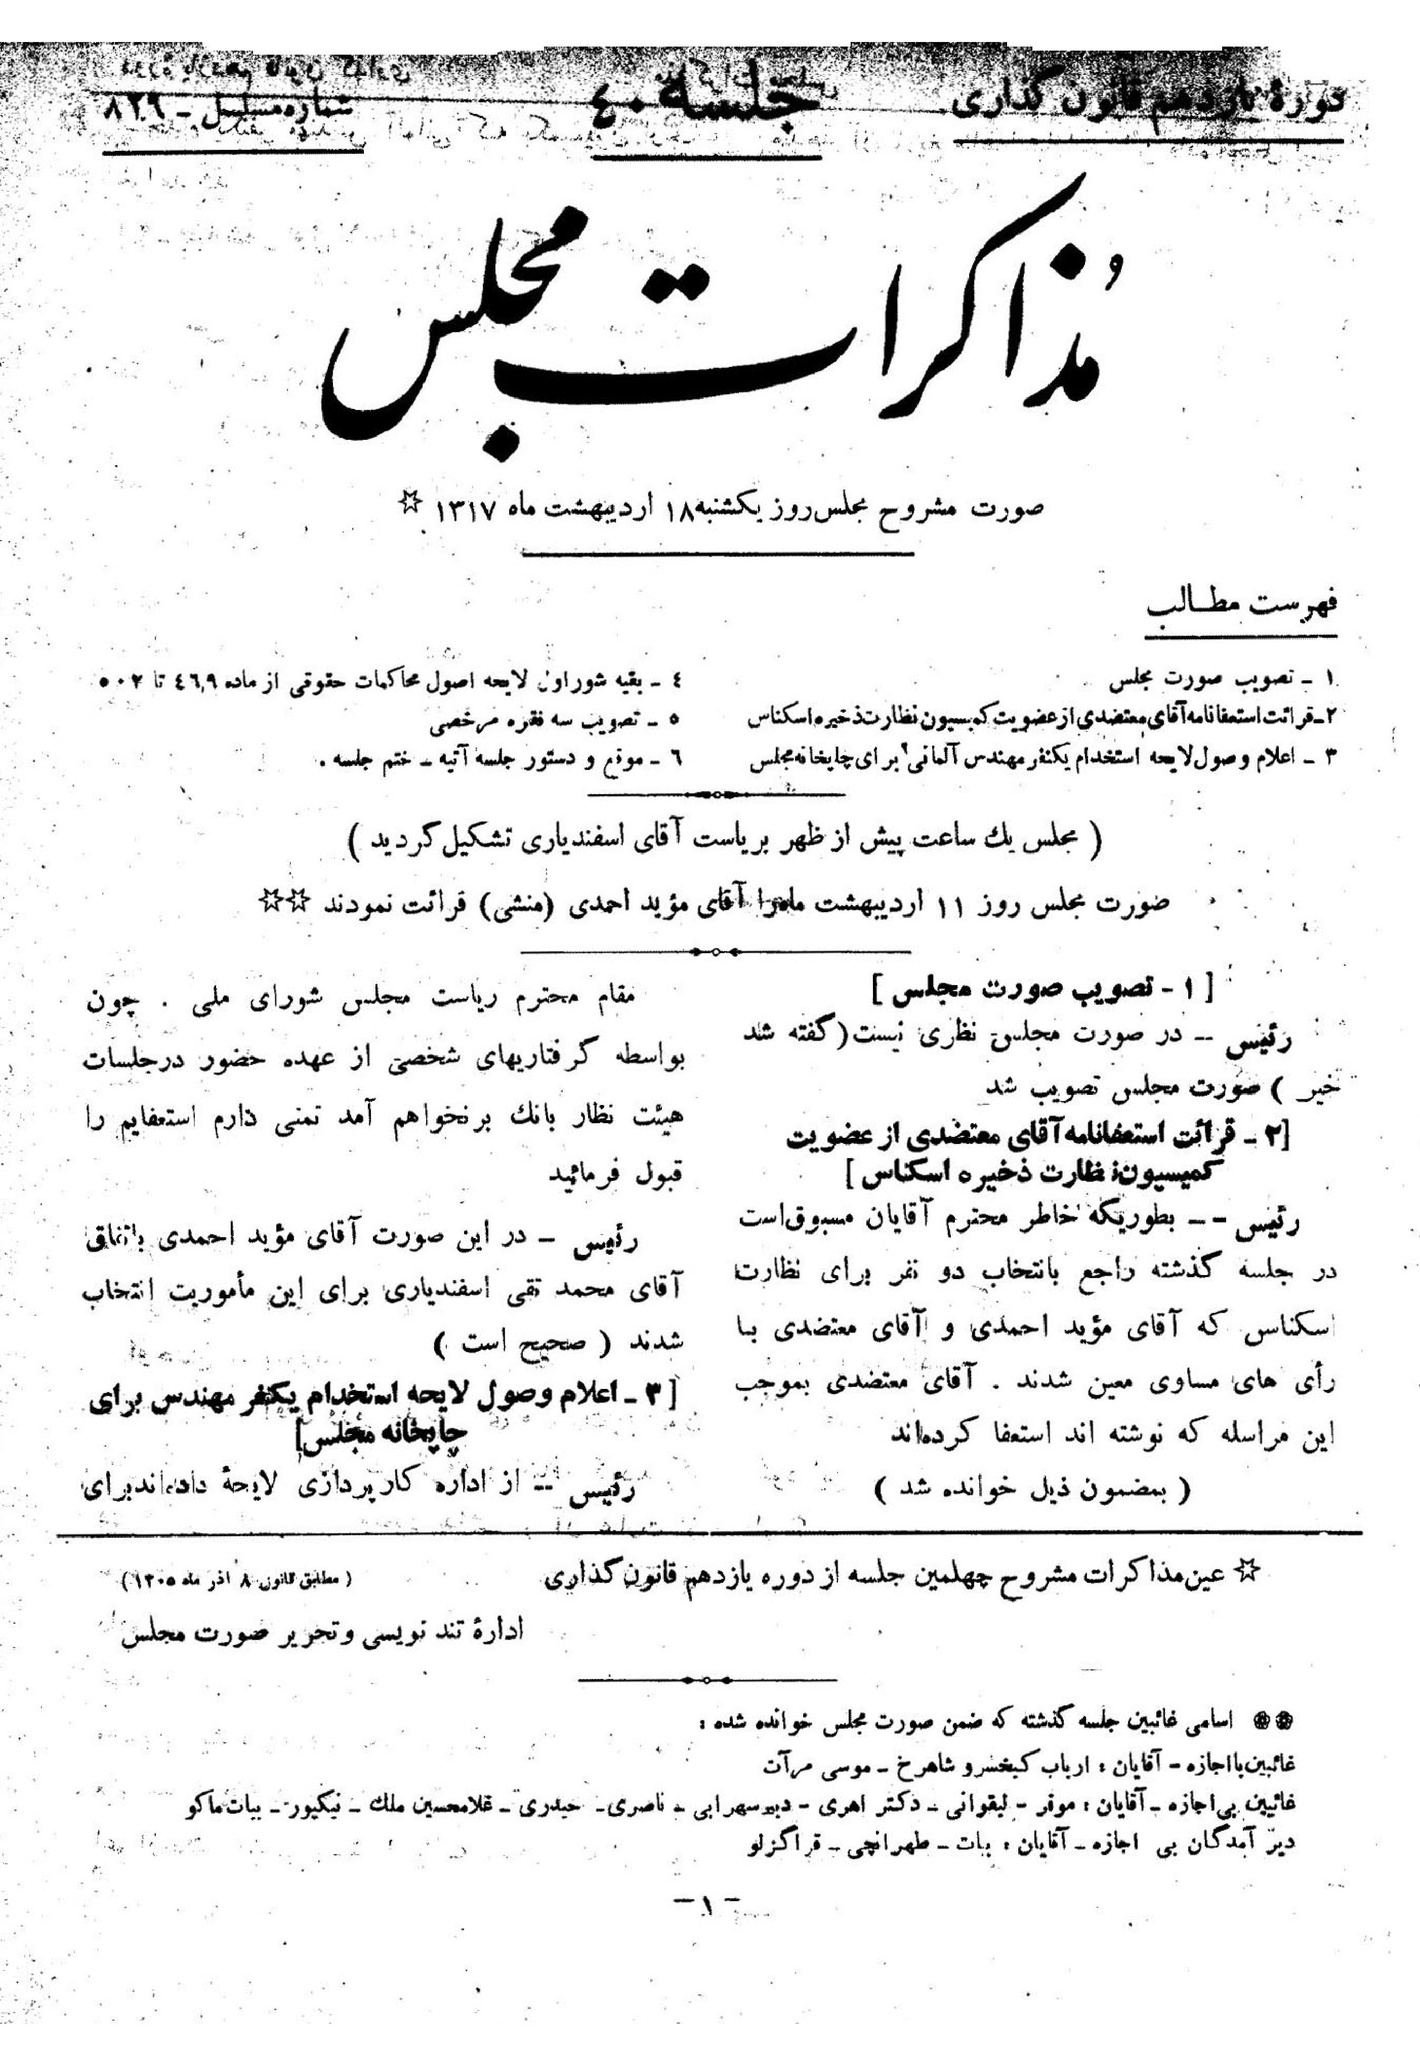 دورهٔ یازدهم قانون گذاری
جلسه ۴۰
شماره مسلسل ـ ۸۲۹
مُذاکرات مجلس
صورت مشروح مجلس روز یکشنبه ۱۸ اردیبهشت ماه ۱۳۱۷ ☆
فهرست مطالب
۱ ـ تصویب صورت مجلس
۲ـ قرائت استعفانامه آقای معتضدی از عضویت کمیسیون نظارت ذخیره اسکناس
۳ ـ اعلام وصول لایحه استخدام یکنفر مهندس آلمانی برای چاپخانه مجلس
۴ ـ بقیه شور اول لایحه اصول محاکمات حقوقی از ماده ۴۶۹ تا ۵۰۲
۵ ـ تصویب سه فقره مرخصی
۶ ـ موقع و دستور جلسه آتیه ـ ختم جلسه .
( مجلس یك ساعت پیش از ظهر بریاست آقای اسفندیاری تشکیل گردید )
صورت مجلس روز ۱۱ اردیبهشت ماه را آقای مؤید احمدی (منشی) قرائت نمودند ☆☆
[ ۱ - تصویب صورت مجلس ]
رئیس -- در صورت مجلس نظری نیست (گفته شد
خیر ) صورت مجلس تصویب شد
[۲ ـ قرائت استعفانامه آقای معتضدی از عضویت
کمیسیون نظارت ذخیره اسکناس ]
رئیس -- بطوریکه خاطر محترم آقایان مسبوق است
در جلسه گذشته راجع بانتخاب دو نفر برای نظارت
اسکناس که آقای مؤید احمدی و آقای معتضدی با
رأی های مساوی معین شدند . آقای معتضدی بموجب
این مراسله که نوشته اند استعفا کرده‌اند
( بمضمون ذیل خوانده شد )
مقام محترم ریاست مجلس شورای ملی . چون
بواسطه گرفتاریهای شخصی از عهده حضور در جلسات
هیئت نظار بانك برنخواهم آمد تمنی دارم استعفایم را
قبول فرمائید
رئیس ـ در این صورت آقای مؤید احمدی باتفاق
آقای محمد تقی اسفندیاری برای این مأموریت انتخاب
شدند ( صحیح است )
[ ۳ ـ اعلام وصول لایحه استخدام یکنفر مهندس برای
چاپخانه مجلس]
رئیس -- از اداره کارپردازی لایحهٔ داده‌اند برای
☆ عین مذاکرات مشروح چهلمین جلسه از دوره یازدهم قانون گذاری
( مطابق قانون ۸ آذر ماه ۱۳۰۵)
ادارهٔ تند نویسی و تحریر صورت مجلس
❁❁ اسامی غائبین جلسه گذشته که ضمن صورت مجلس خوانده شده :
غائبین با اجازه - آقایان : ارباب کیخسرو شاهرخ ـ موسی مرآت
غائبین بی اجازه ـ آقایان : موقر - لیقوانی ـ دکتر اهری - دبیر سهرابی ـ ناصری ـ حیدری ـ غلامحسین ملك ـ نیکپور ـ بیات ماکو
دیر آمدگان بی اجازه ـ آقایان : بیات ـ طهرانچی ـ قراگزلو
ـ ۱ ـ